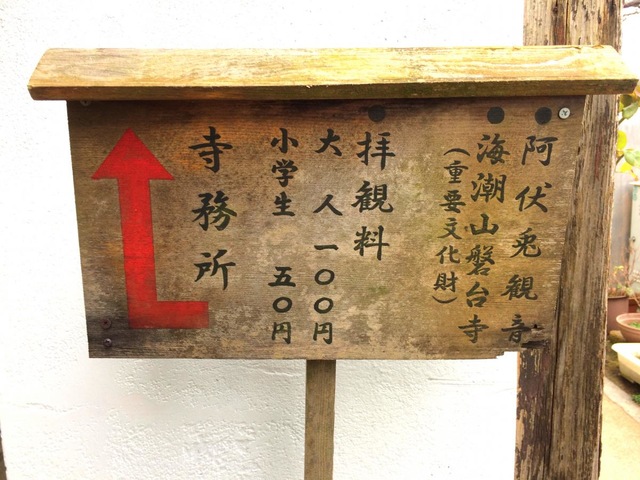 阿伏兎観音
海潮山磐台寺
(重要文化財)
拝観料
大人 一〇〇円
小学生 五〇円
寺務所